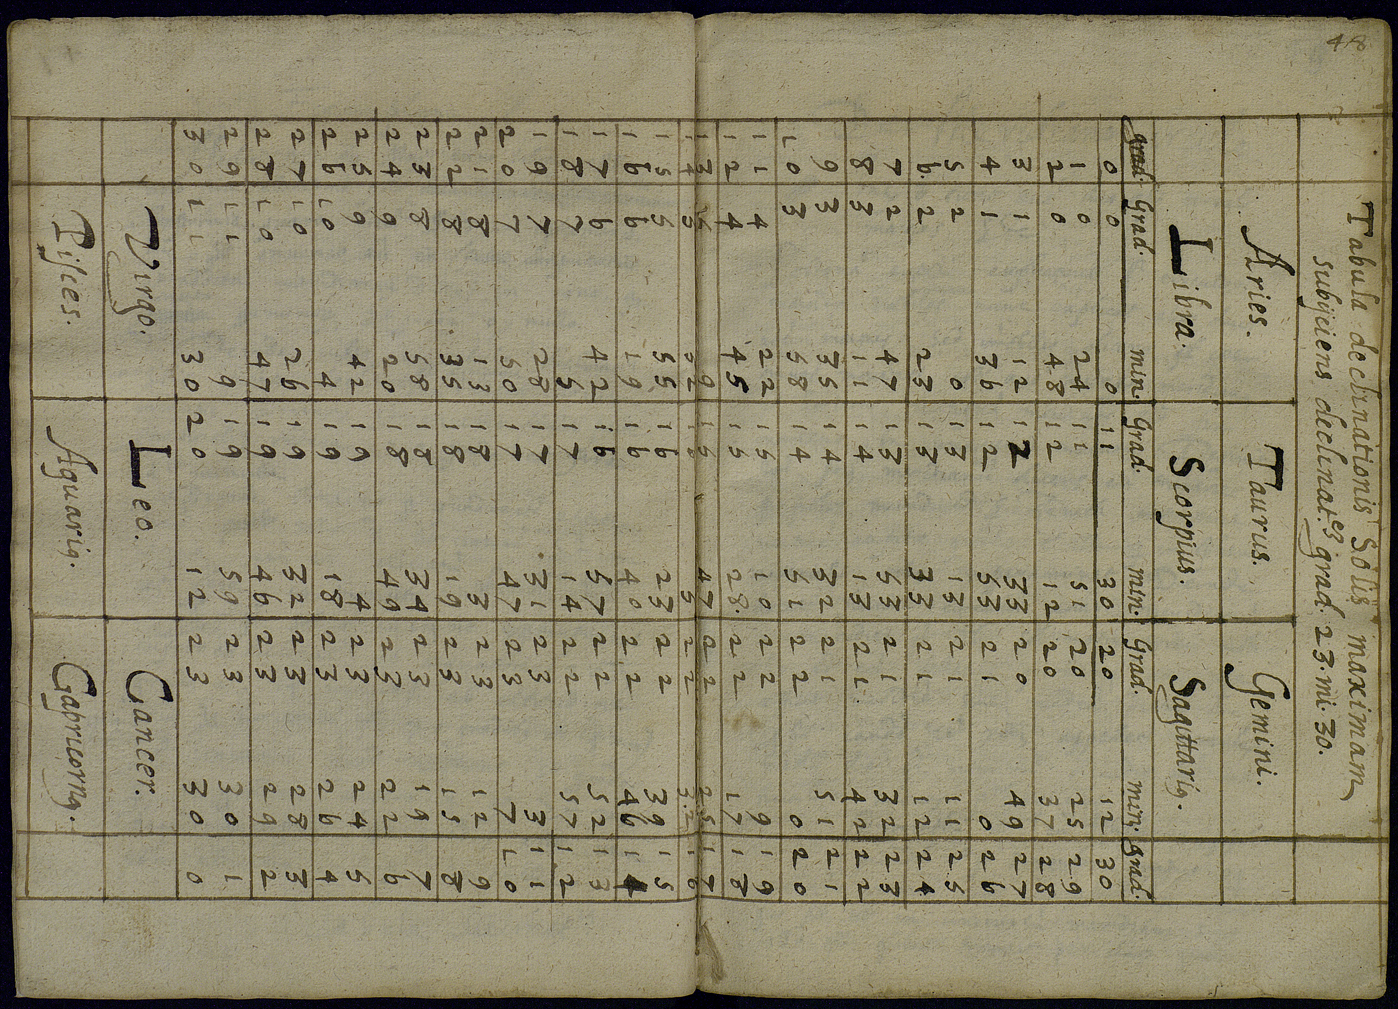 48
Tabula declinationis Solis maximam
subijciens declinat.es grad. 23. mi. 30.
Aries. Taurus. Gemini.
Libra. Scorpius. Sagittariꝰ.
grad. Grad. min. Grad. min. Grad. min. Grad.
0 0 0 11 30 20 12 30
1 0 24 11 51 20 25 29
2 0 48 12 12 20 37 28
3 1 12 12 33 20 49 27
4 1 36 12 53 21 0 26
5 2 0 13 13 21 11 25
6 2 23 13 33 21 12 24
7 2 47 13 53 21 32 23
8 3 11 14 13 21 42 22
9 3 35 14 32 21 51 21
10 3 58 14 51 22 0 20
11 4 22 15 10 22 9 19
12 4 45 15 28 22 17 18
13 5 9 15 47 22 25 17
14 5 32 5 22 32 16
15 5 55 16 23 22 39 15
16 6 19 16 40 22 46 14
17 6 42 16 57 22 52 13
18 7 5 17 14 22 57 12
19 7 28 17 31 23 3 11
20 7 50 17 47 23 7 10
21 8 13 18 3 23 12 9
22 8 35 18 19 23 15 8
23 8 58 18 34 23 19 7
24 9 20 18 49 23 22 6
25 9 42 19 4 23 24 5
26 10 4 19 18 23 26 4
27 10 26 19 32 23 28 3
28 10 47 19 46 23 29 2
29 11 9 19 59 23 30 1
30 11 30 20 12 23 30 0
Virgo. Leo. Cancer.
Pisces. Aquariꝰ. Capricornꝰ.